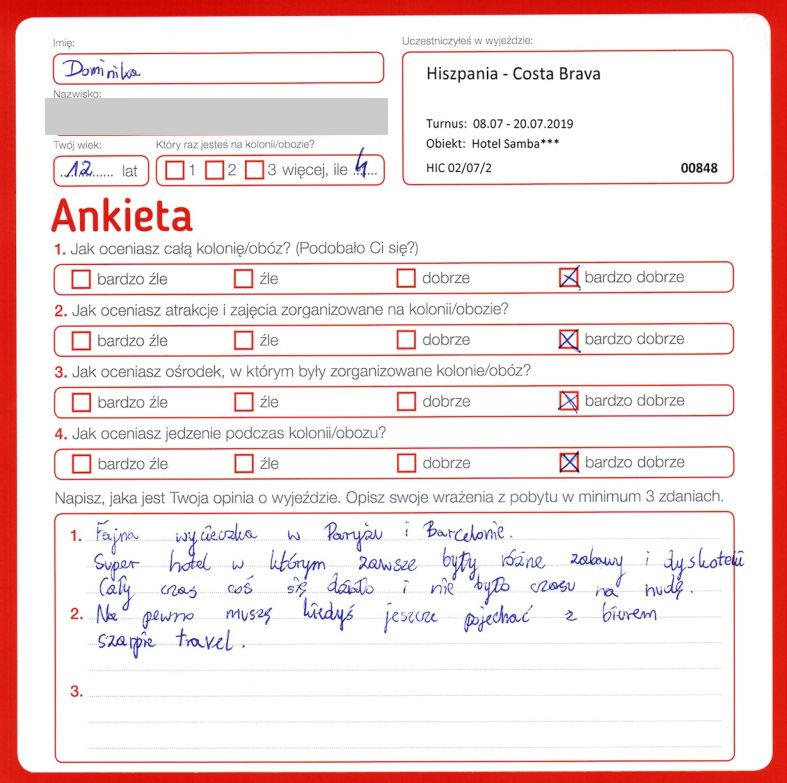 Imię:
Dominika
Nazwisko:
Twój wiek:
12 lat
Który raz jesteś na kolonii/obozie?
1 2 3 więcej, ile 4
Uczestniczyłeś w wyjeździe:
Hiszpania - Costa Brava
Turnus: 08.07 - 20.07.2019
Obiekt: Hotel Samba***
HIC 02/07/2 00848
Ankieta
1. Jak oceniasz całą kolonię/obóz? (Podobało Ci się?)
bardzo źle źle dobrze bardzo dobrze
2. Jak oceniasz atrakcje i zajęcia zorganizowane na kolonii/obozie?
bardzo źle źle dobrze bardzo dobrze
3. Jak oceniasz ośrodek, w którym były zorganizowane kolonie/obóz?
bardzo źle źle dobrze bardzo dobrze
4. Jak oceniasz jedzenie podczas kolonii/obozu?
bardzo źle źle dobrze bardzo dobrze
Napisz, jaka jest Twoja opinia o wyjeździe. Opisz swoje wrażenia z pobytu w minimum 3 zdaniach.
1. Fajna wycieczka w Paryżu i Barcelonie.
Super hotel w którym zawsze były różne zabawy i dyskoteki
Cały czas coś się działo i nie było czasu na nudę.
2. Na pewno muszę kiedyś jeszcze pojechać z biurem
szarpie travel.
3.